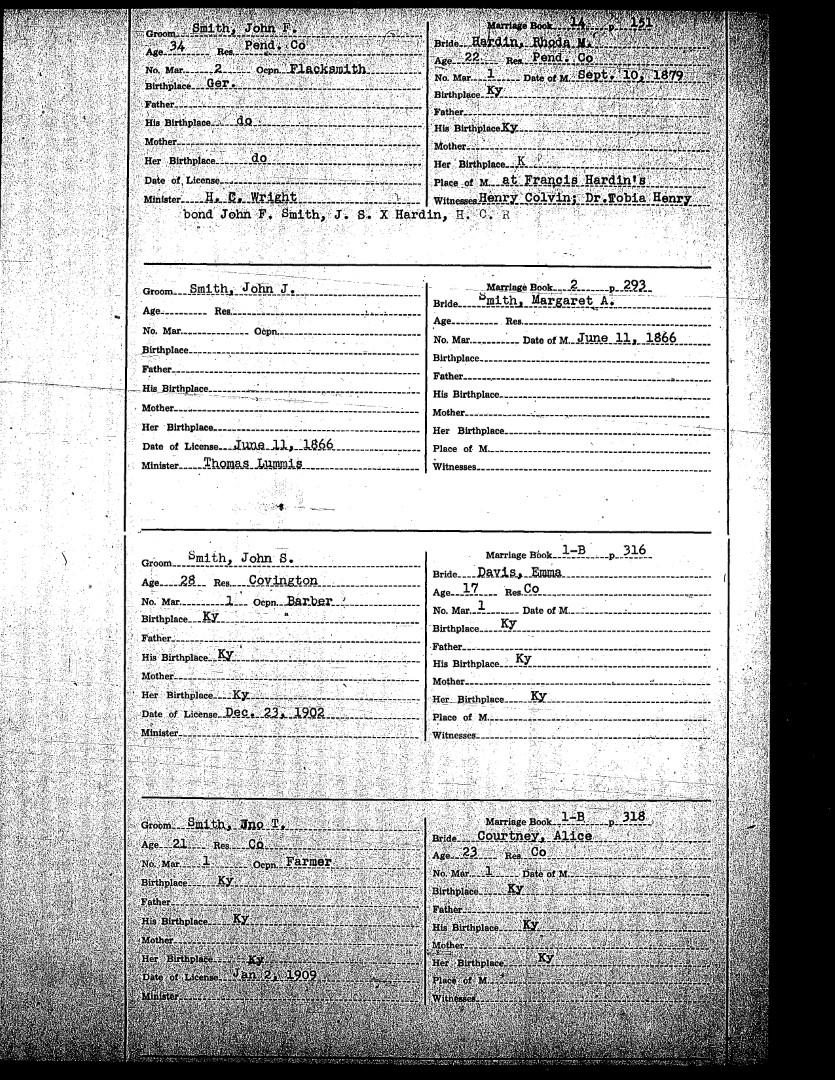 Groom Smith, John F.
Age 34 Res Pend. Co
No. Mar. 2 Ocpn. Flacksmith
Birthplace Ger.
Father
His Birthplace do
Mother
Her Birthplace do
Date of License
Minister H. C. Wright
Marriage Book 14 p. 151
Bride Hardin, Rhoda M.
Age 22 Res. Pend. Co
No. Mar. 1 Date of M. Sept. 10, 1879
Birthplace Ky
Father
His Birthplace Ky
Mother
Her Birthplace K
Place of M. at Francis Hardin's
Witnesses Henry Colvin; Dr.Tobia Henry
bond John F. Smith, J. S. X Hardin, H. C. R
Groom Smith, John J.
Age Res.
No. Mar. Ocpn.
Birthplace
Father
His Birthplace
Mother
Her Birthplace
Date of License June 11, 1866
Minister Thomas Lummis
Marriage Book 2 p. 293
Bride Smith, Margaret A.
Age Res.
No. Mar. Date of M. June 11, 1866
Birthplace
Father
His Birthplace
Mother
Her Birthplace
Place of M.
Witnesses
Groom Smith, John S.
Age 28 Res. Covington
No. Mar. 1 Ocpn. Barber
Birthplace Ky
Father
His Birthplace Ky
Mother
Her Birthplace Ky
Date of License Dec. 23, 1902
Minister
Marriage Book 1-B p. 316
Bride Davis, Emma
Age 17 Res. Co
No. Mar. 1 Date of M.
Birthplace Ky
Father
His Birthplace Ky
Mother
Her Birthplace Ky
Place of M.
Witnesses
Groom Smith, Jno T.
Age 21 Res. Co
No. Mar. 1 Ocpn. Farmer
Birthplace Ky
Father
His Birthplace Ky
Mother
Her Birthplace Ky
Date of License Jan 2, 1909
Minister
Marriage Book 1-B p. 318
Bride Courtney, Alice
Age 23 Res. Co
No. Mar. 1 Date of M.
Birthplace Ky
Father
His Birthplace Ky
Mother
Her Birthplace Ky
Place of M.
Witnesses